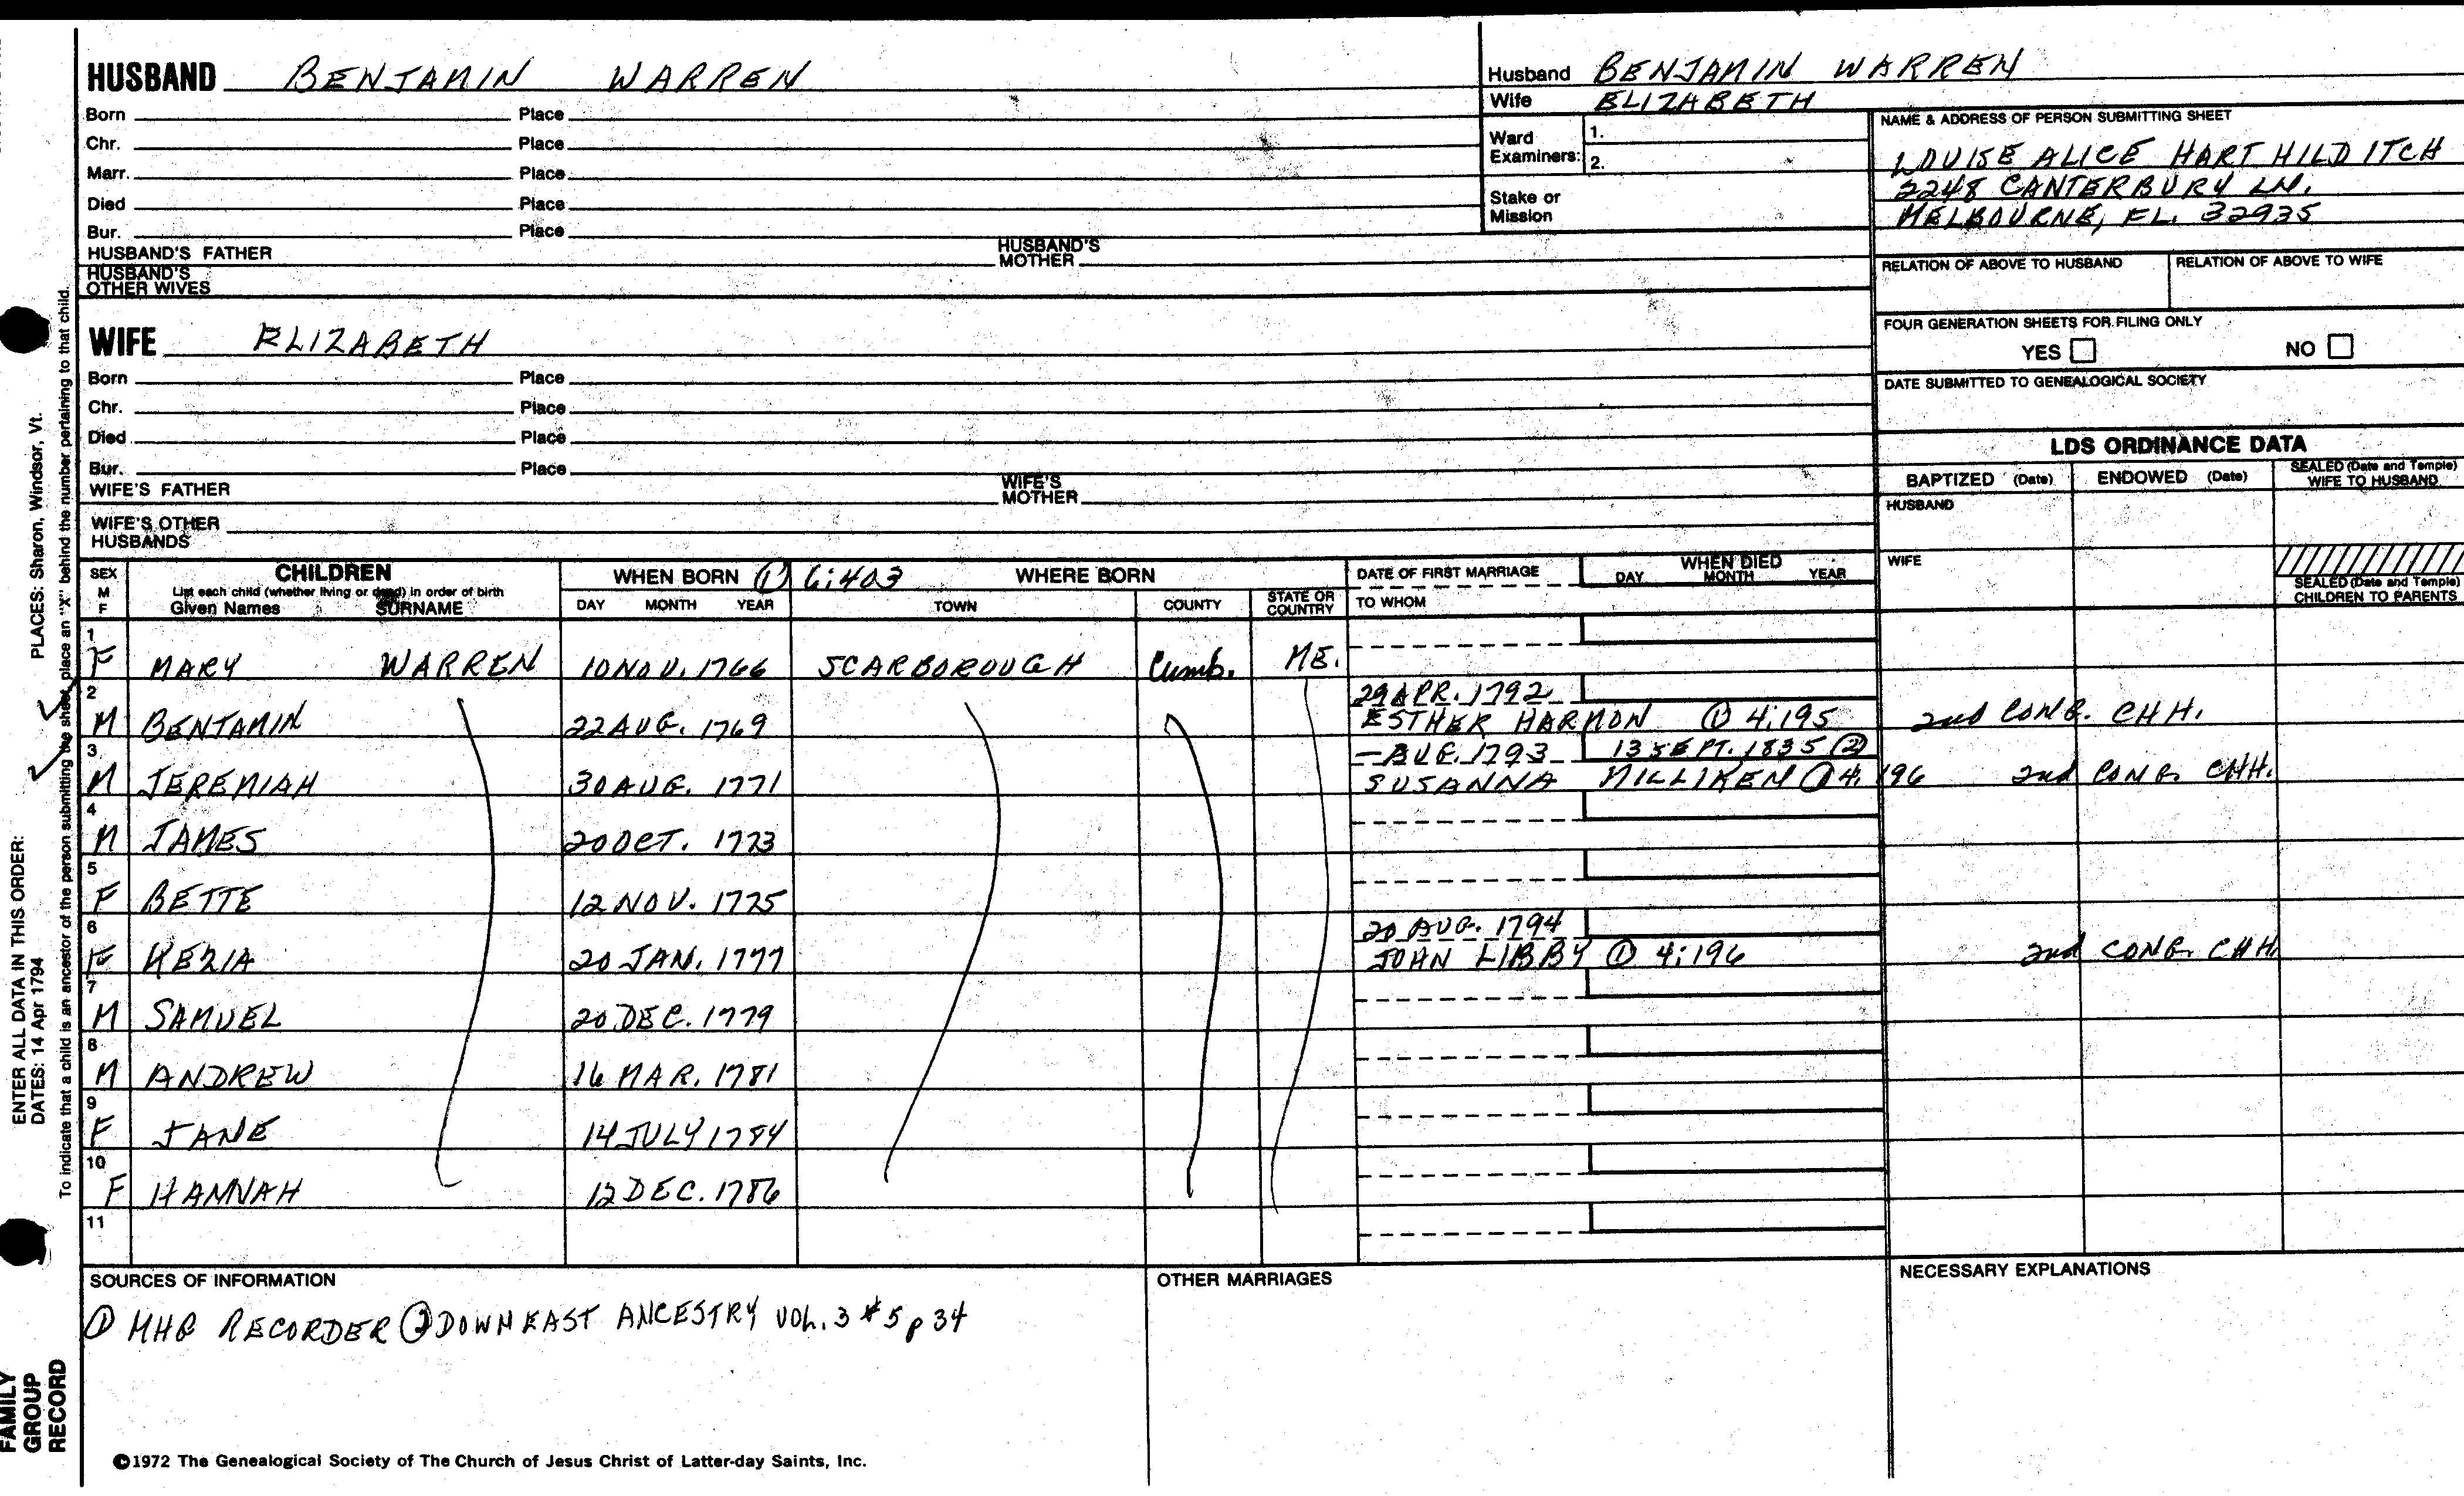 HUSBAND BENJAMIN WARREN
Born Place
Chr. Place
Marr. Place
Died Place
Bur. Place
HUSBAND'S FATHER HUSBAND'S MOTHER
HUSBAND'S OTHER WIVES
WIFE ELIZABETH
Born Place
Chr. Place
Died Place
Bur. Place
WIFE'S FATHER WIFE'S MOTHER
WIFE'S OTHER HUSBANDS
Husband BENJAMIN WARREN
Wife ELIZABETH
Ward Examiners: 1.
2.
Stake or Mission
NAME & ADDRESS OF PERSON SUBMITTING SHEET
LOUISE ALICE HART HILDITCH
2248 CANTERBURY LN.
MELBOURNE, FL. 32935
RELATION OF ABOVE TO HUSBAND RELATION OF ABOVE TO WIFE
FOUR GENERATION SHEETS FOR FILING ONLY
YES NO
DATE SUBMITTED TO GENEALOGICAL SOCIETY
LDS ORDINANCE DATA
BAPTIZED (Date) ENDOWED (Date) SEALED (Date and Temple) WIFE TO HUSBAND
HUSBAND
WIFE
SEALED (Date and Temple) CHILDREN TO PARENTS
SEX M F
CHILDREN
List each child (whether living or dead) in order of birth
Given Names SURNAME
WHEN BORN ① 6:403 WHERE BORN
DAY MONTH YEAR TOWN COUNTY STATE OR COUNTRY
DATE OF FIRST MARRIAGE
TO WHOM
WHEN DIED
DAY MONTH YEAR
1
F MARY WARREN 10 NOV. 1766 SCARBOROUGH Cumb. ME.
2 29 APR. 1792
M BENJAMIN 22 AUG. 1769 ESTHER HARMON ① 4:195 2nd CONG. CHH.
3 - AUG. 1793 13 SEPT. 1835 ②
M JEREMIAH 30 AUG. 1771 SUSANNA MILLIKEN ① 4:196 2nd CONG. CHH.
4
M JAMES 20 OCT. 1773
5
F BETTE 12 NOV. 1775
6 20 AUG. 1794
F KEZIA 20 JAN. 1777 JOHN LIBBY ① 4:196 2nd CONG. CHH
7
M SAMUEL 20 DEC. 1779
8
M ANDREW 16 MAR. 1781
9
F JANE 14 JULY 1784
10
F HANNAH 12 DEC. 1786
11
SOURCES OF INFORMATION
① MHG RECORDER ② DOWNEAST ANCESTRY VOL. 3 #5 p 34
OTHER MARRIAGES
NECESSARY EXPLANATIONS
©1972 The Genealogical Society of The Church of Jesus Christ of Latter-day Saints, Inc.
FAMILY GROUP RECORD
ENTER ALL DATA IN THIS ORDER:
DATES: 14 Apr 1794
PLACES: Sharon, Windsor, Vt.
To indicate that a child is an ancestor of the person submitting the sheet, place an "X" behind the number pertaining to that child.